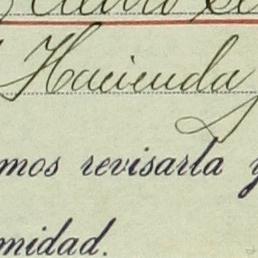 Hacienda
mos revisarla y
midad.